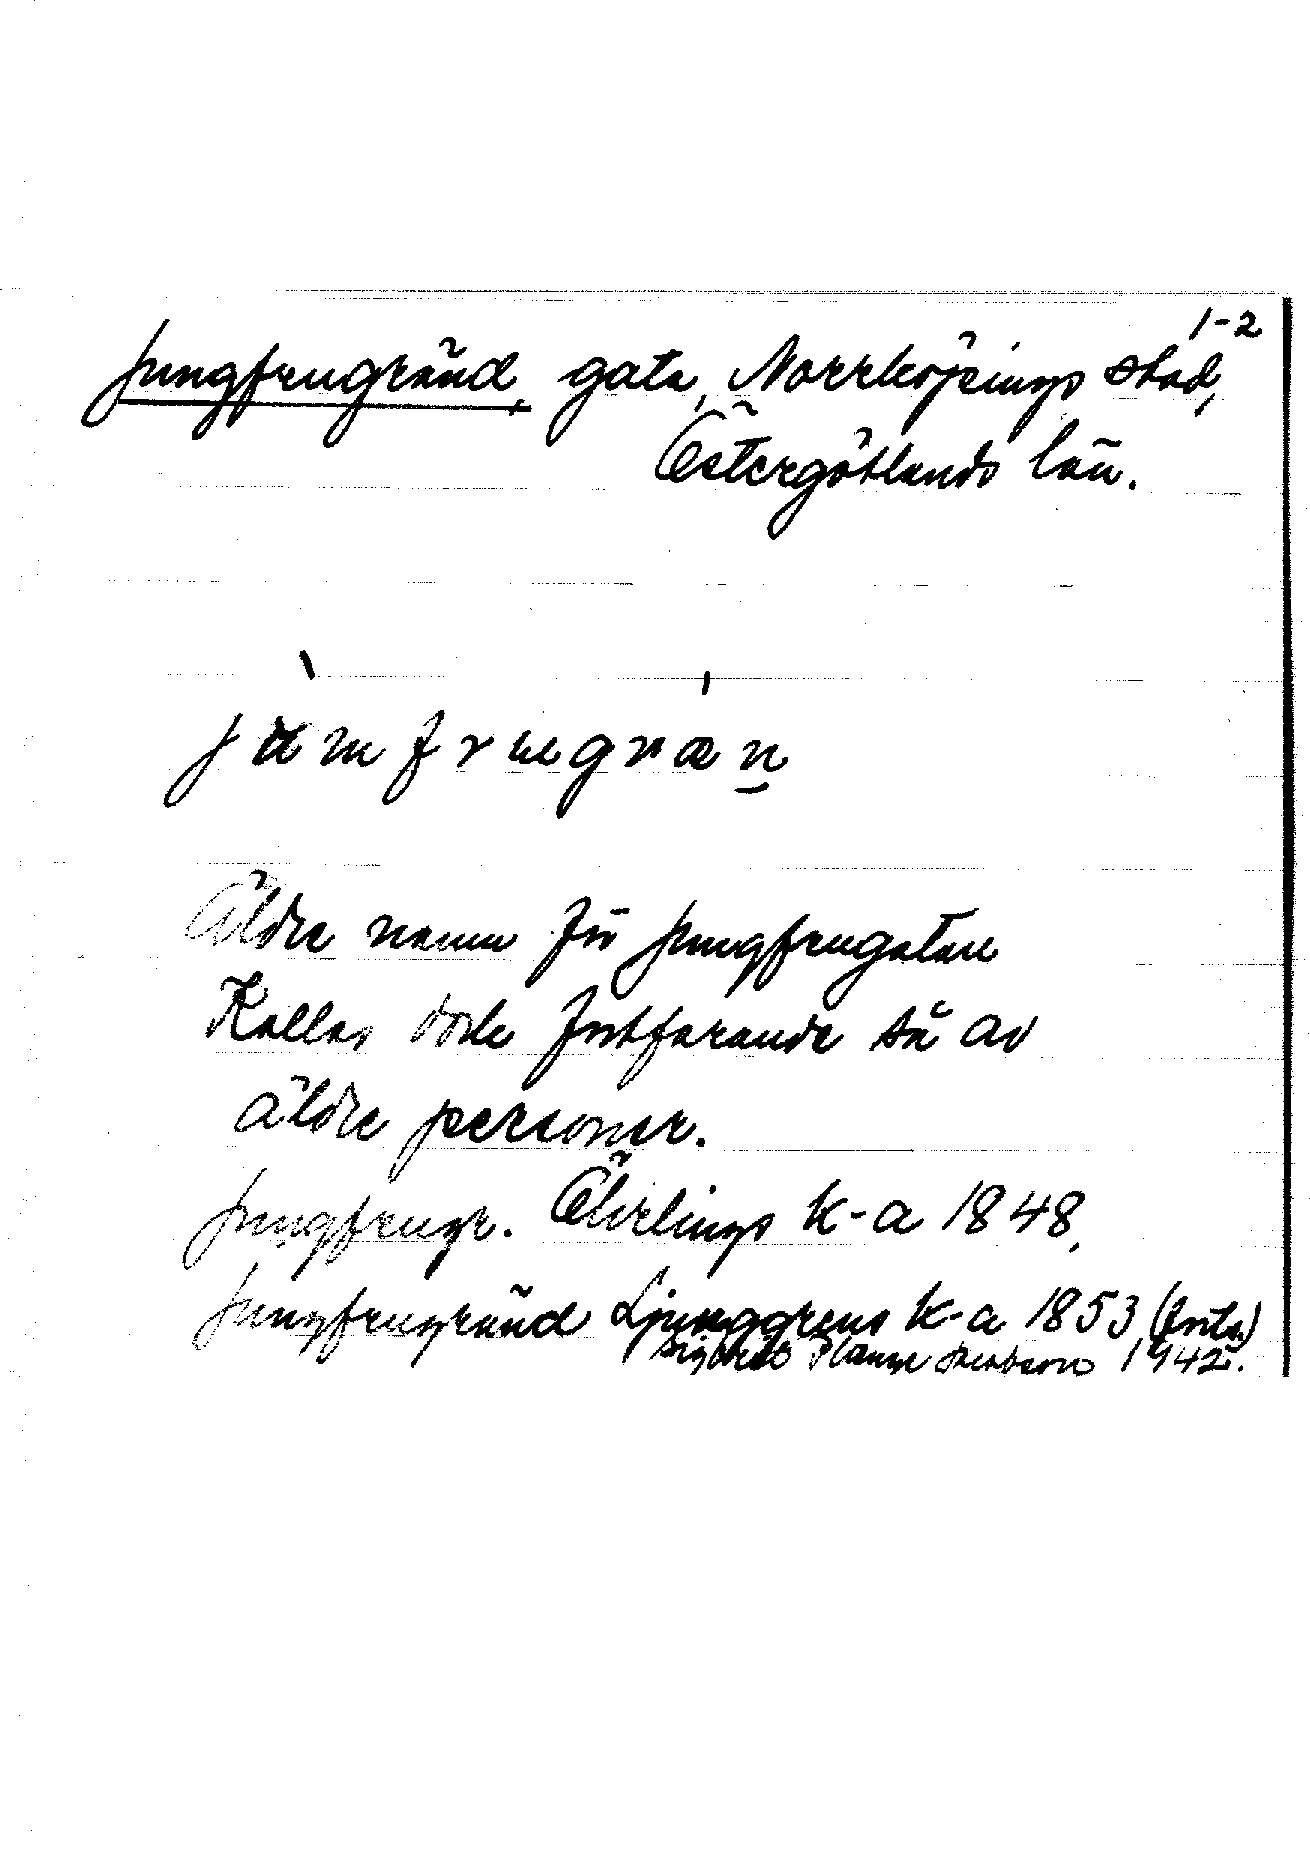 1-2
Jungfrugränd, gata, Norrköpings stad,
Östergötlands län.
jùmfrugræ'n
Äldre namn för Jungfrugatan
Kallas dock fortfarande så av
äldre personer.
Jungfrugr. Öhrlings k-a 1848,
Jungfrugränd Ljunggrens k-a 1853 (forts.)
Plange Jacobson 1942.